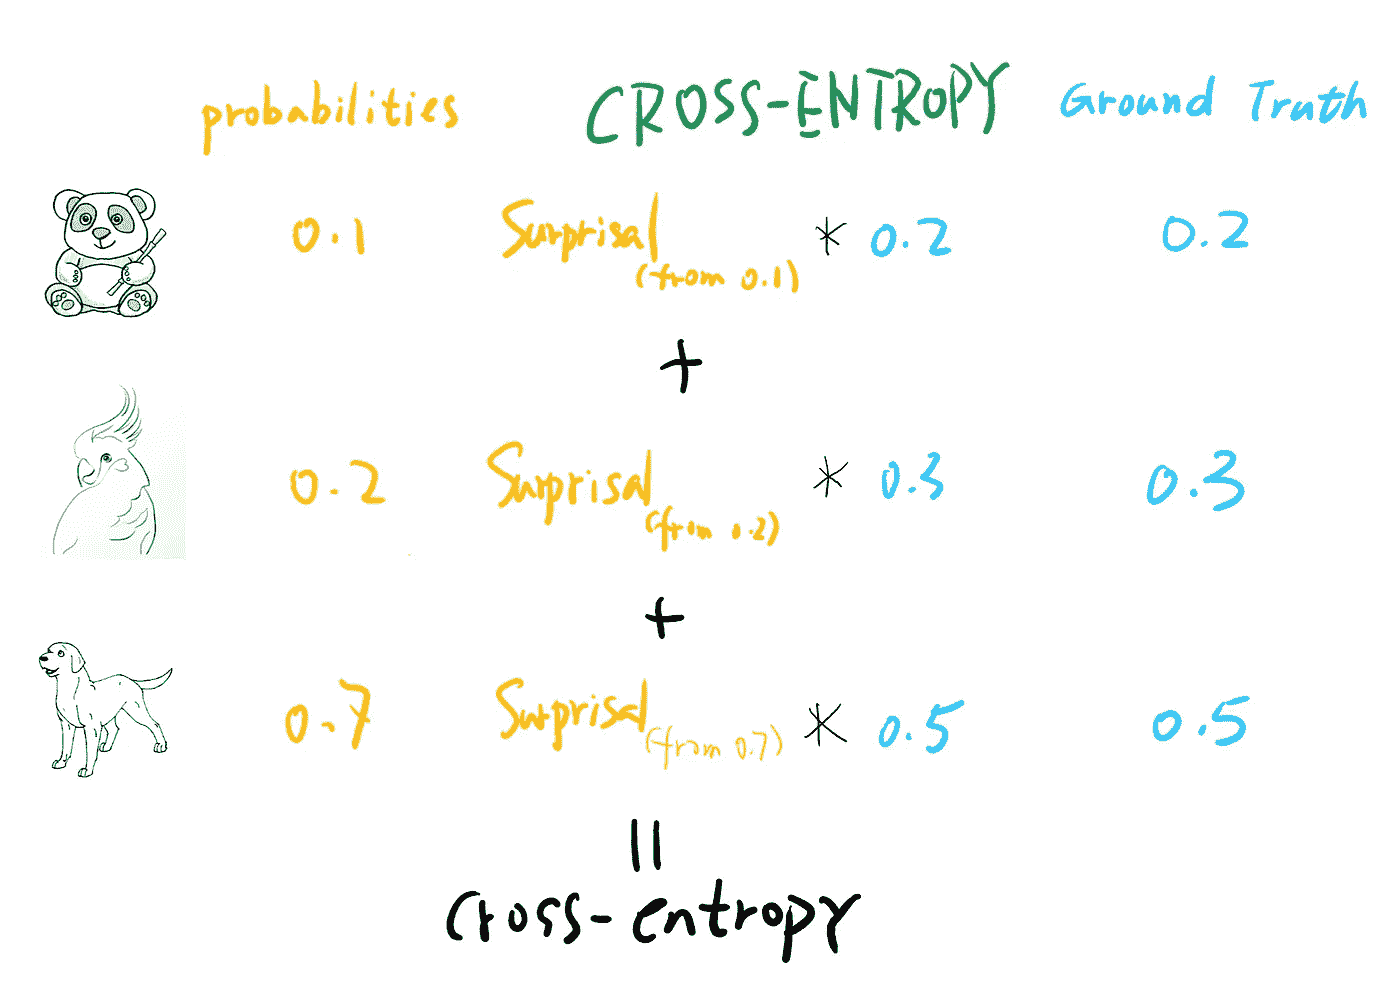 probabilities CROSS-ENTROPY Ground Truth
0.1 Surprisal (from 0.1) * 0.2 0.2
+
0.2 Surprisal (from 0.2) * 0.3 0.3
+
0.7 Surprisal (from 0.7) * 0.5 0.5
=
cross-entropy